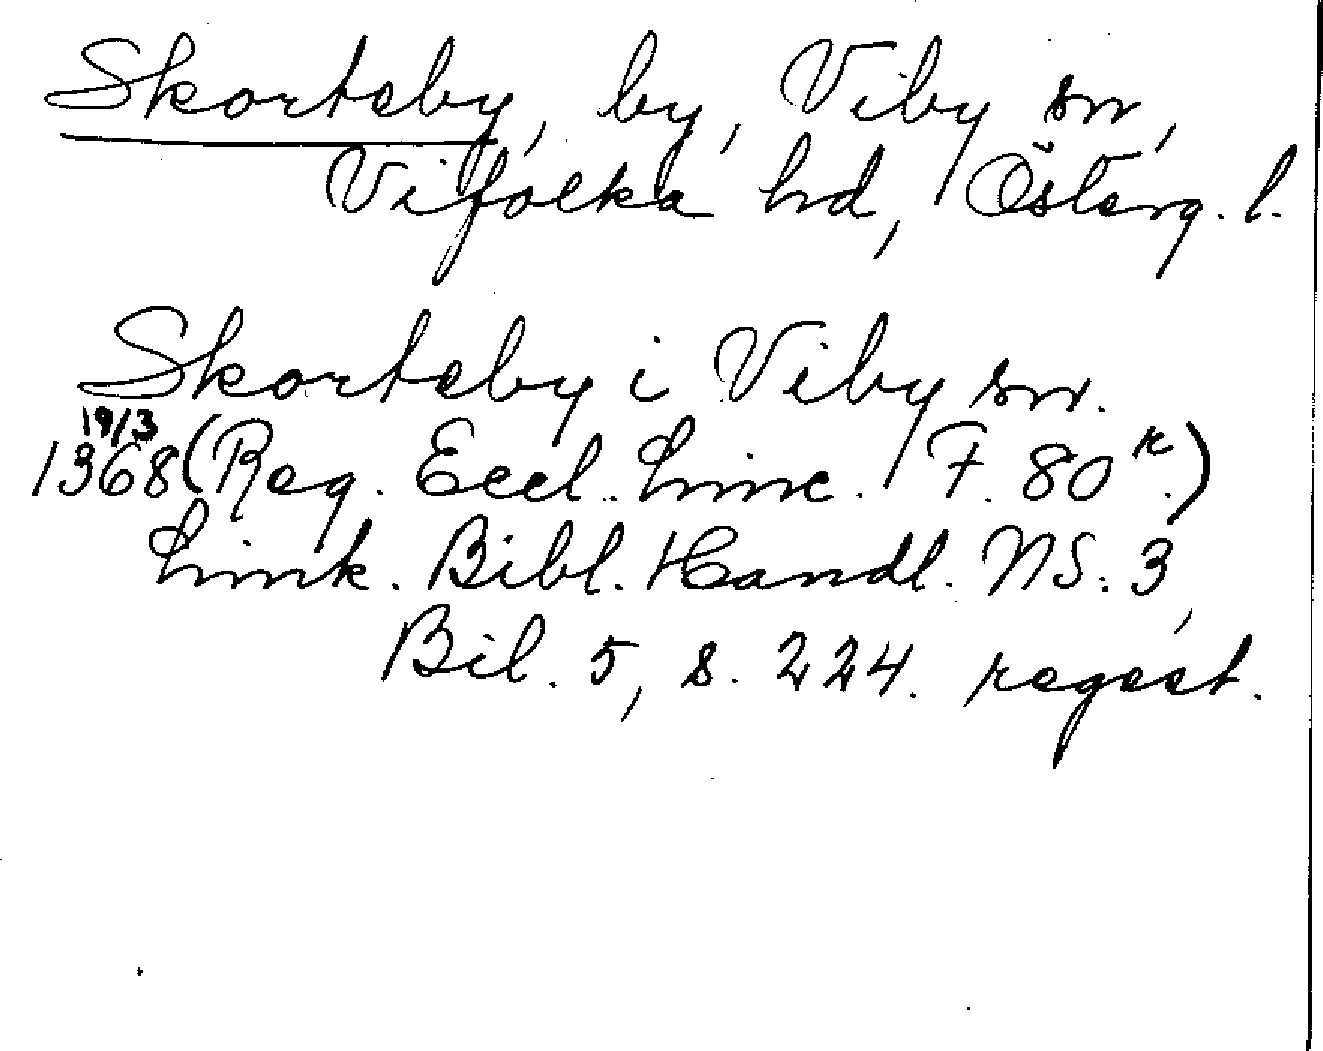 Skorteby, by, Viby sn,
Vifolka hd, Österg. l.
Skorteby i Viby sn.
19/3
1368 (Reg. Eccl. Linc. F. 80 r.)
Link. Bibl. Handl. NS. 3,
Bil. 5, s. 224. regest.